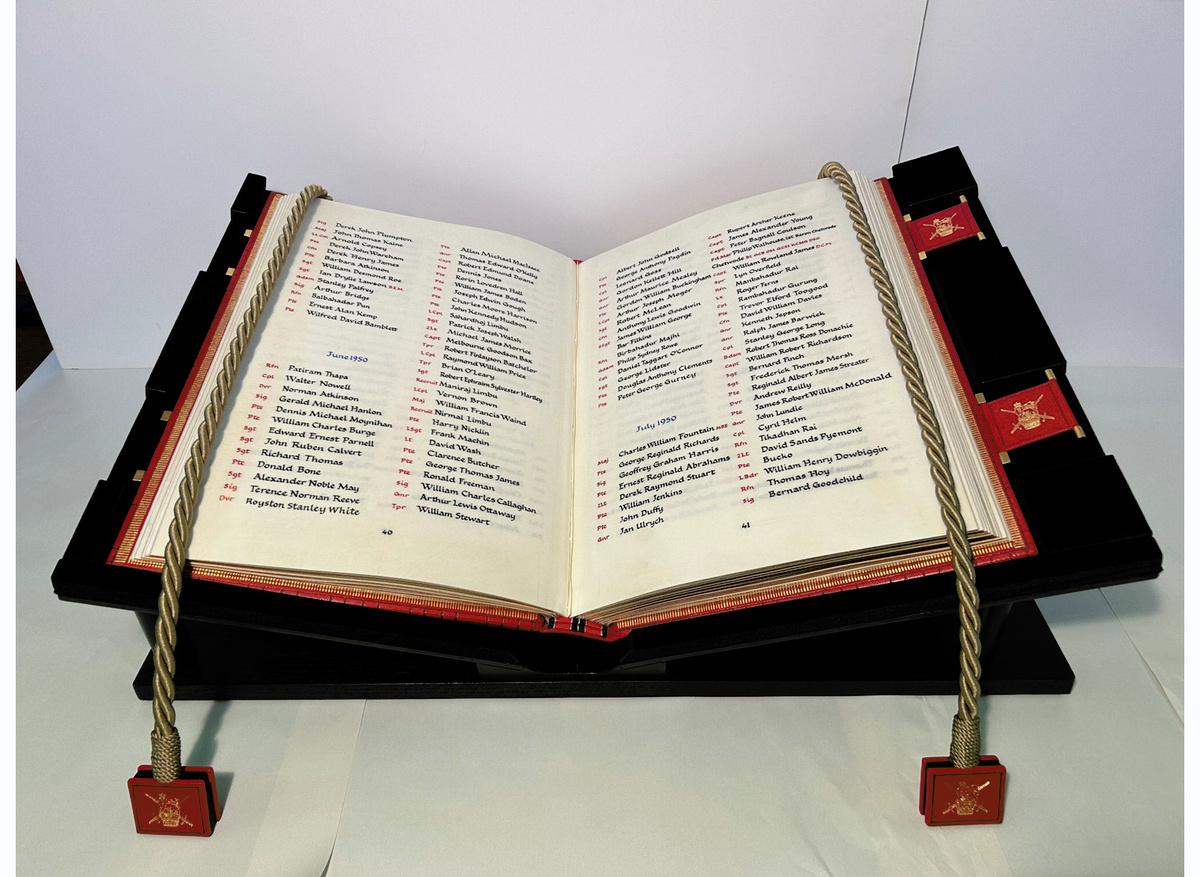 Sig Derek John Plumpton
Maj John Thomas Kaine
L Cpl Arnold Copsey
Pte Derek John Wareham
Pte Derek Henry James
Pte Barbara Atkinson
Pte William Desmond Roe
Sgt Ian Drylie Lawson D.C.M.
Gdsm Stanley Palfrey
Sig Arthur Bridge
Rfn Balbahadar Pun
Pte Ernest Alan Kemp
Pte Wilfred David Bamblett
June 1950
Rfn Patiram Thapa
Cpl Walter Nowell
Dvr Norman Atkinson
Sig Gerald Michael Hanlon
Pte Dennis Michael Moynihan
Pte William Charles Burge
Sgt Edward Ernest Parnell
Sgt John Ruben Calvert
Sgt Richard Thomas
Pte Donald Bone
Sgt Alexander Noble May
Sig Terence Norman Reeve
Dvr Royston Stanley White
Pte Allen Michael Maclean
Thomas Edward O'Kelly
Robert Edmund Duane
Dennis Jones
Rorin Lovedren Hall
William James Boden
Joseph Edwin Gough
Charles Moore Harrison
L Cpl John Kennedy Hudson
Sgt Bohardhoj Limbu
2Lt Patrick Joseph Walsh
Capt Michael James Morrice
Tpr Melbourne Goodson Bax
L Cpl Robert Finlayson Batchelor
Tpr Raymond William Price
Sgt Brian O'Leary
Recruit Robert Ephraim Sylvester Hartley
LCpl Maniraj Limbu
Maj Vernon Brown
Recruit William Francis Waind
L Sgt Nirmal Limbu
Pte Harry Nicklin
Lt Frank Machin
Pte David Wash
Pte Clarence Butcher
Pte George Thomas James
Sig Ronald Freeman
Gnr William Charles Callaghan
Tpr Arthur Lewis Ottaway
William Stewart
40
Cpl Albert John Godsell
George Anthony Pagdin
Leonard Gess
Gordon Kellett Hill
Arthur Maurice Mealey
Gordon William Buckingham
Arthur Joseph Moger
Robert McLean
Anthony Lewis Goodwin
James William George
Bar Filkins
Birbahadur Majhi
Philip Sydney Rowe
Daniel Taggart O'Connor
George Lidster
Douglas Anthony Clements
Peter George Gurney
July 1950
Maj Charles William Fountain MBE
Pte George Reginald Richards
Pte Geoffrey Graham Harris
Sig Ernest Reginald Abrahams
Pte Derek Raymond Stuart
William Jenkins
Pte John Duffy
Gnr Jan Ulrych
Capt Rupert Archer Keene
Capt James Alexander Young
Capt Peter Bagnall Coulson
Fd Mar Philip Walhouse, 1st Baron Chetwode
Chetwode
William Rowland James D.C.M.
Lyn Overfield
Manbahadur Rai
Roger Terns
Rambahadur Gurung
Trevor Elford Toogood
David William Davies
Kenneth Jepson
Ralph James Barwick
Stanley George Long
Robert Thomas Ross Donachie
William Robert Richardson
Bernard Finch
Frederick Thomas Mersh
Reginald Albert James Streater
Andrew Reilly
James Robert William McDonald
Pte John Lundie
Gnr Cyril Helm
Cpl Tikadhan Rai
Rfn David Sands Pyemont
2Lt Bucko
Pte William Henry Dowbiggin
L Bdr Thomas Hoy
Rfn Bernard Goodchild
Sig
41